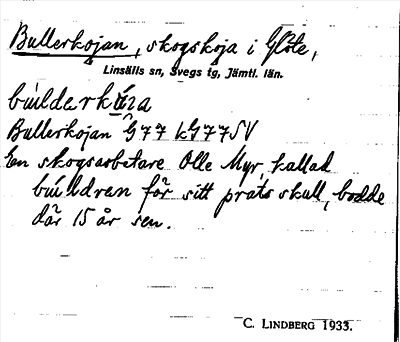 Bullerkojan, skogskoja i Glöte,
Linsälls sn, Svegs tg, Jämtl. län.
Bullerkojan G77 LG77SV
En skogsarbetare Olle Myr, kallad
build­ran för sitt prats skull, bodde
där 15 år sen.
C. LINDBERG 1933.